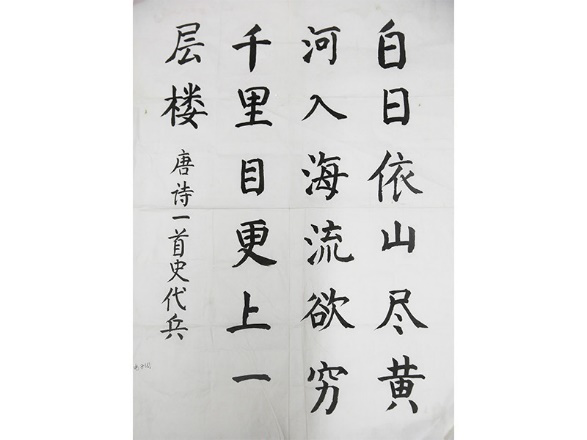 白日依山尽黄
河入海流欲穷
千里目更上一
层楼
唐诗一首史代兵